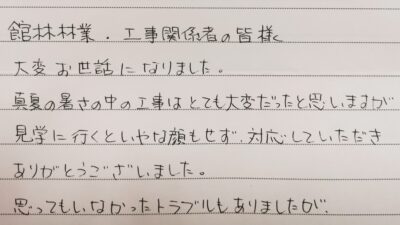 館林林業．工事関係者の皆様へ
大変お世話になりました。
真夏の暑さの中の工事はとても大変だったと思いますが
見学に行くといやな顔もせず、対応していただき
ありがとうございました。
思ってもいなかったトラブルもありましたが、